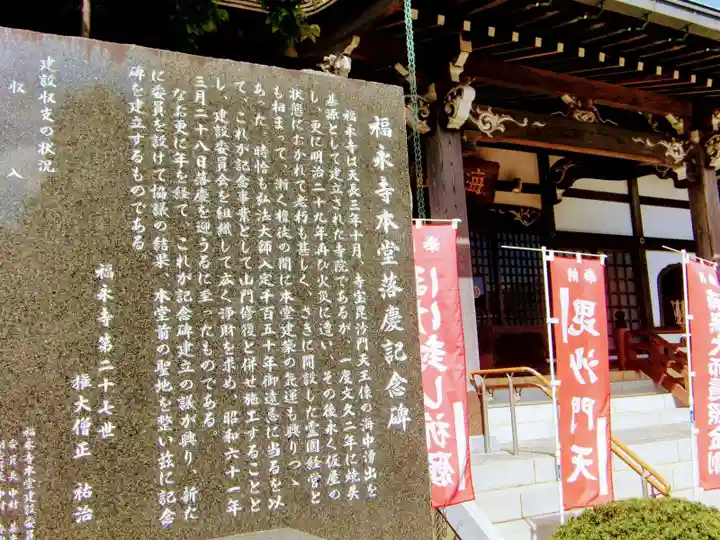 福永寺本堂落慶記念碑
福永寺は天長三年十月、寺宝毘沙門天王像の海中湧出を
基源として建立された寺院であるが、一度文久二年に焼失
し、更に明治二十九年再び火災に遭い、その後永く仮屋の
状態におかれて老朽も甚しく、さきに開設した霊園経営と
も相まって、漸く檀徒の間に本堂建築の気運も興りつゝ
あった。時恰も弘法大師入定千百五十年御遠忌に当るを以
て、これが記念事業として山門修復と併せ施工することと
し、建設委員会を組織して広く浄財を求め、昭和六十一年
三月二十八日落慶を迎うるに至ったものである
なお更に年を経て、これが記念碑建立の議が興り、新た
に委員を設けて協議の結果、本堂前の聖地を整い茲に記念
碑を建立するものである
福永寺第二十七世
権大僧正 祐治
建設収支の状況
収入
福永寺本堂建設委員
委員長 中林
奉
ぼけ封じ祈願
奉
納
毘沙門天
海